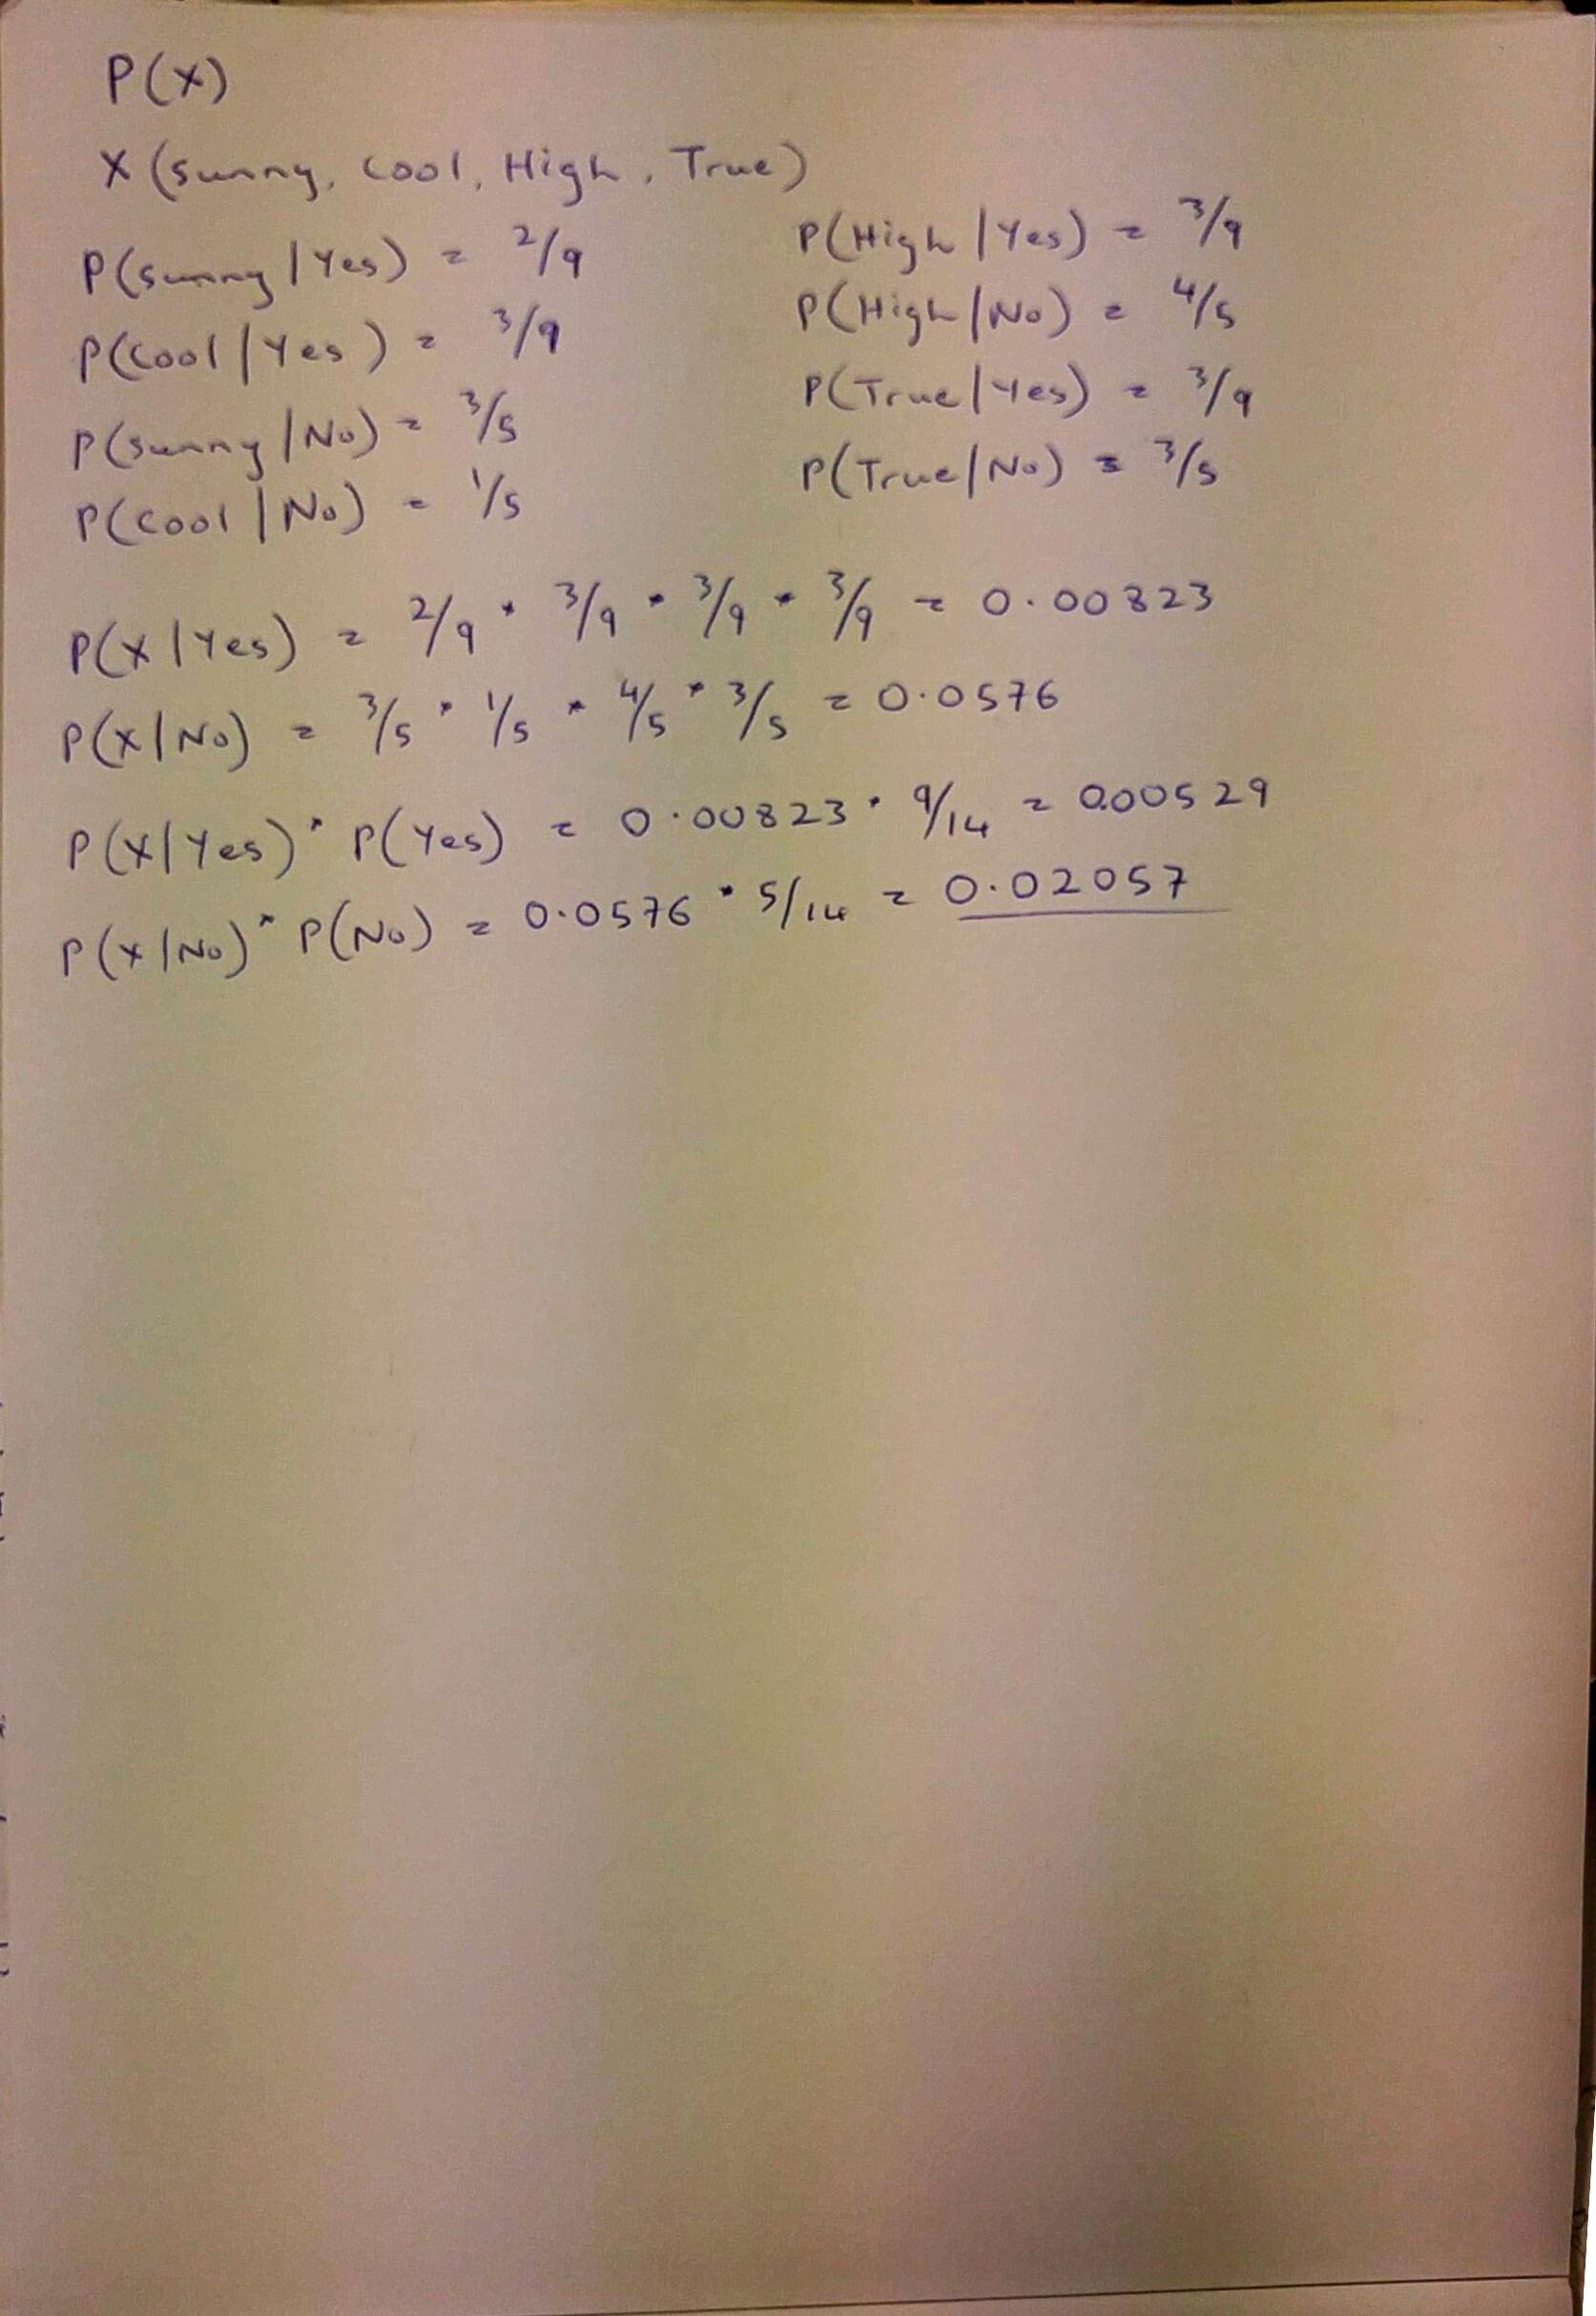 P(X)
X (Sunny, Cool, High, True)
P(Sunny | Yes) = 2/9
P(Cool | Yes) = 3/9
P(Sunny | No) = 3/5
P(Cool | No) = 1/5
P(High | Yes) = 3/9
P(High | No) = 4/5
P(True | Yes) = 3/9
P(True | No) = 3/5
P(X | Yes) = 2/9 * 3/9 * 3/9 * 3/9 = 0.00823
P(X | No) = 3/5 * 1/5 * 4/5 * 3/5 = 0.0576
P(X | Yes) * P(Yes) = 0.00823 * 9/14 = 0.00529
P(X | No) * P(No) = 0.0576 * 5/14 = 0.02057